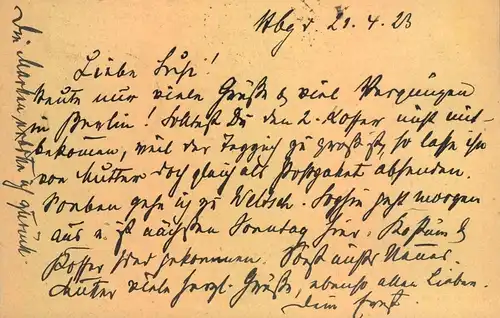 Hbg. d. 21.4.23
Liebe Susi!
Heute nur viele Grüße & viel Vergnügen
in Berlin! Solltest Du den 2. Koffer nicht mit-
bekommen, weil der zu groß ist, so lasse ihn
von Mutter doch gleich als Postpaket absenden.
Soeben gehe ich zu geht morgen
aus u. ist nächsten Sonntag hier. Kostüm &
Koffer sind gekommen. Sonst nichts Neues.
Mutter viele herzl. Grüße, ebenso allen Lieben.
Dein Ernst.
Die Marken erbitte ich zurück.